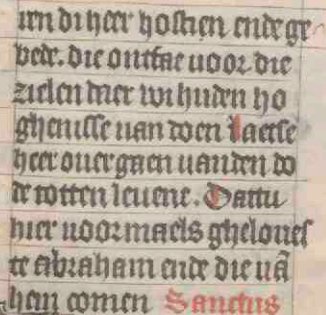 wi di heer hostien ende ge
bede. die ontfae uoor die
zielen daer wi huden ho
ghenisse uan doen laetse
heer ouergaen uanden do
de totten leuene. Dattu
hier uoormaels ghelouef
te abraham ende die uā
hem comen Sanctus